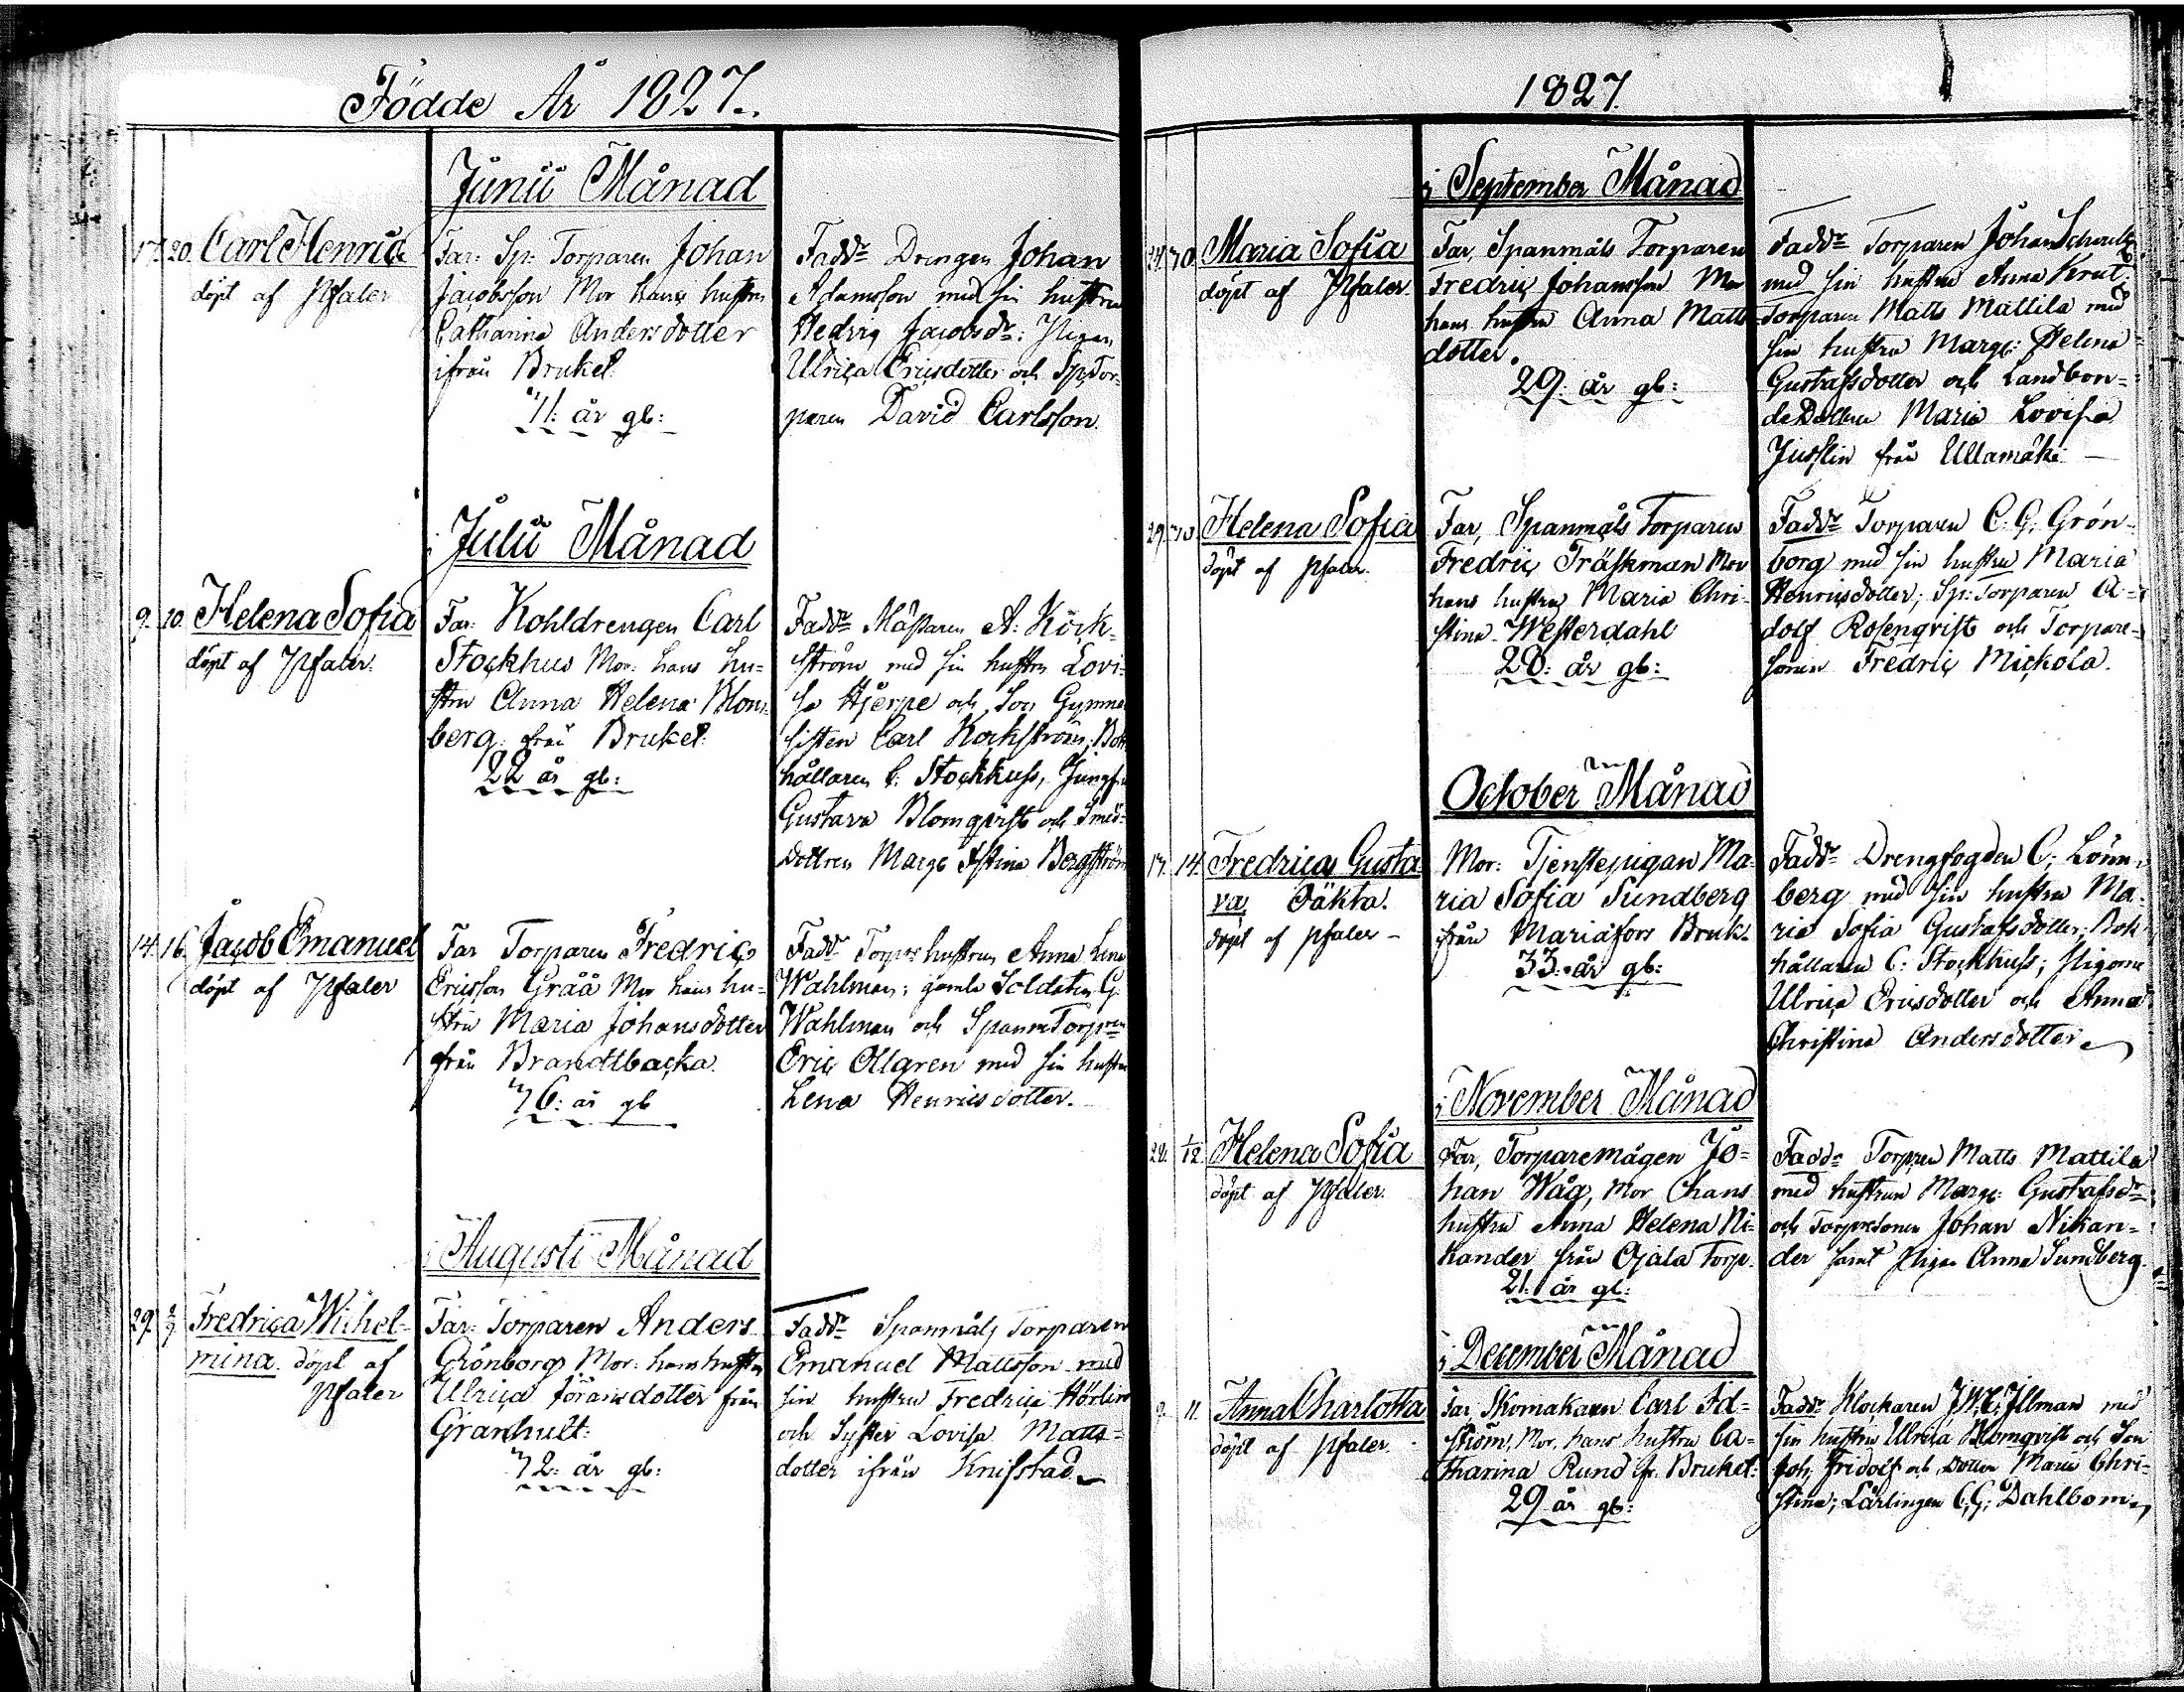 Födde År 1827.
Junii Månad
17. 20. Carl Henric
döpt af Pfaler
Far: Sp: Torparen Johan
Jacobsson Mor hans hustru
Catharina Andersdotter
ifrån Bruket.
41. år gl:
Faddr Drengen Johan
Adamsson med sin hustru
Hedvig Jacobsdr: Pigan
Ulrica Ericsdotter och Sp: Tor-
paren David Carlsson.
Julii Månad
9. 10. Helena Sofia
döpt af Pfaler.
Far: Kohldrengen Carl
Stockhus Mor: hans hu-
stru Anna Helena Blom-
berg från Bruket.
22 år gl:
Faddr Mästaren A: Köck-
ström med sin hustru Lovi-
sa Hjerpe och Son Gymna
sisten Carl Kockström; Bok
hållaren C: Stockhuss, Jungfr
Gustava Blomqvist och Smed-
dottren Marge Stina Bergström
14. 16. Jacob Emanuel
döpt af Pfaler
Far Torparen Fredric
Ericsson Gråå Mor hans hu-
stru Maria Johansdotter
från Brandtbacka.
Faddr hustrun Anna Lena
Wahlman; gamla Soldaten G.
Wahlman och Spanm Torpren
Eric Ollgren med sin hustru
Lena Henricsdotter.
Augusti Månad
29. 2/9 Fredrica Wihel-
mina. döpt af
Pfaler
Far: Torparen Anders
Grönborg Mor: hans hustru
Ulrica Jöransdotter från
Granhult:
42: år gl:
Faddr Spanmåls Torparen
Emanuel Mattsson med
sin hustru Fredrica Hörlin
och Syster Lovisa Matts-
dotter ifrån Knifstad
1827.
September Månad
Maria Sofia
döpt af Pfaler.
Far, Spanmåls Torparen
Fredric Johansson Mor
hans hustru Anna Matts
dotter.
29. år gl:
Faddr Torparen Johan Schoultz
med sin hustru Anna Knut:
Torparen Matts Mattila med
sin hustru Marge: Helena
Gustafsdotter och Landbon-
de Dottren Maria Lovisa
Jusslin från Ullamäki
29. Helena Sofia
döpt af Pfaler.
Far, Spanmåls Torparen
Fredric Träskman Mor
hans hustru Maria Chri-
stina Westerdahl
28: år gl:
Faddr Torparen C: G: Grön-
borg med sin hustru Maria
Henricsdotter; Sp: Torparen A-
dolf Rosenqvist och Torpare-
sonen Fredric Mickola.
October Månad
14. Fredrica Gusta
va, Oäkta.
döpt af Pfaler
Mor: Tjenstepigan Ma-
ria Sofia Sundberg
från Mariafors Bruk.
33: år gl:
Faddr Drengfogden C: Lönn-
berg med sin hustru Ma-
ria Sofia Gustafsdotter; Bok
hållaren C: Stockhuss; Pigorne
Ulrica Ericsdotter och Anna
Christina Andersdotter
November Månad
Helena Sofia
döpt af Pfaler.
Far, Torparemågen Jo-
han Wåg, Mor hans
hustru Anna Helena Ni-
kander från Ojala Torp.
21. år gl:
Faddr Torpren Matts Mattila
med hustrun Marge: Gustafsdr
och Torpresonen Johan Nikan-
der samt Pigan Anna Sundberg.
December Månad
9. 11. Anna Charlotta
döpt af Pfaler.
Far, Skomakaren Carl Ed-
ström, Mor, hans hustru Ca-
tharina Rund fr. Bruket.
29 år gl:
Faddr Klockaren J. W. Illman med
sin hustru Ulrica Blomqvist och Son
Joh. Fridolf och Dotter Maria Chri-
stina; Lärlingen C. G. Dahlbom